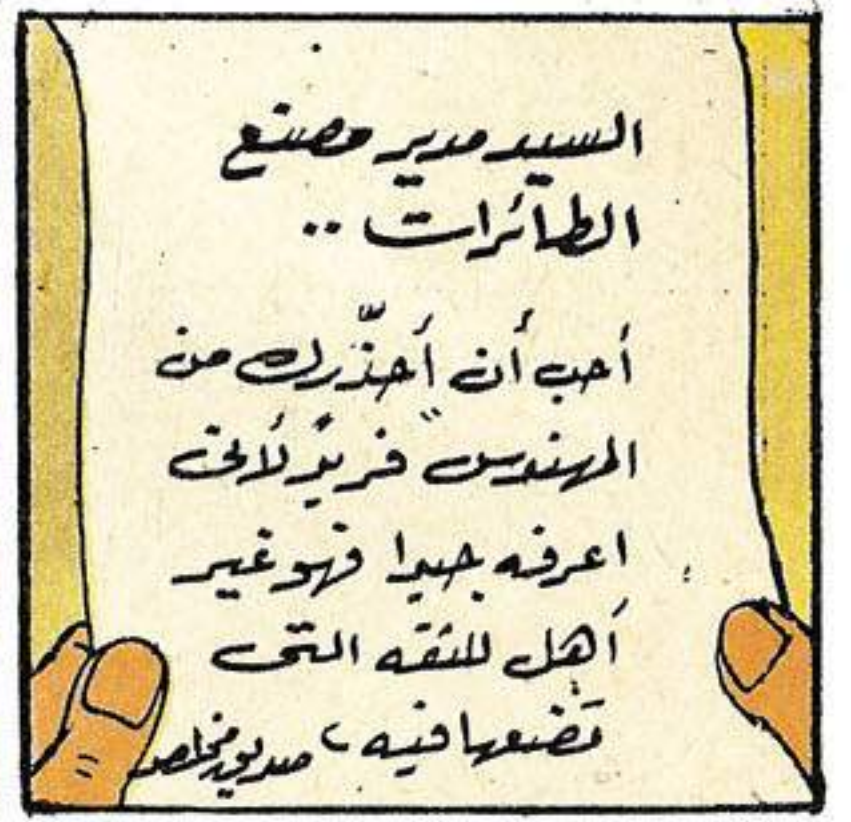 السيد مدير مصنع
الطائرات ..
أحب أن أحذّرك من
المهندس "فريد" لأنى
اعرفه جيدا فهو غير
أهل للثقه التى
تضعها فيه، صديق مخلص